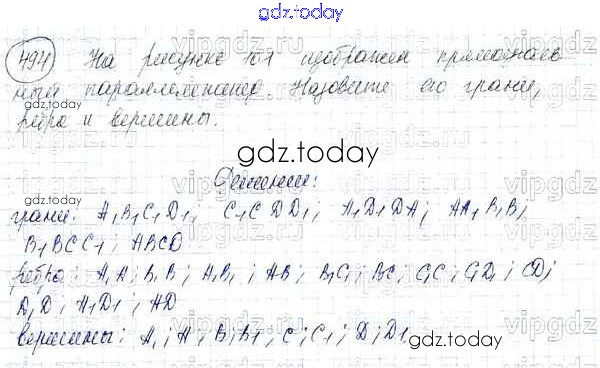 gdz.today
494 На рисунке 101 изображен прямоуголь
ный параллелепипед. Назовите его грани,
ребра и вершины.
gdz.today
gdz.today
gdz.today
Решение:
грани: A₁B₁C₁D₁; C₁C DD₁; A₁D₁DA; AA₁B₁B;
B₁BCC₁; ABCD
ребро: A₁A; B₁B; A₁B₁; AB; B₁C₁; BC; C₁C; C₁D₁; CD;
D₁D; A₁D₁; AD
вершины: A₁; A; B; B₁; C; C₁; D; D₁
gdz.today
gdz.today